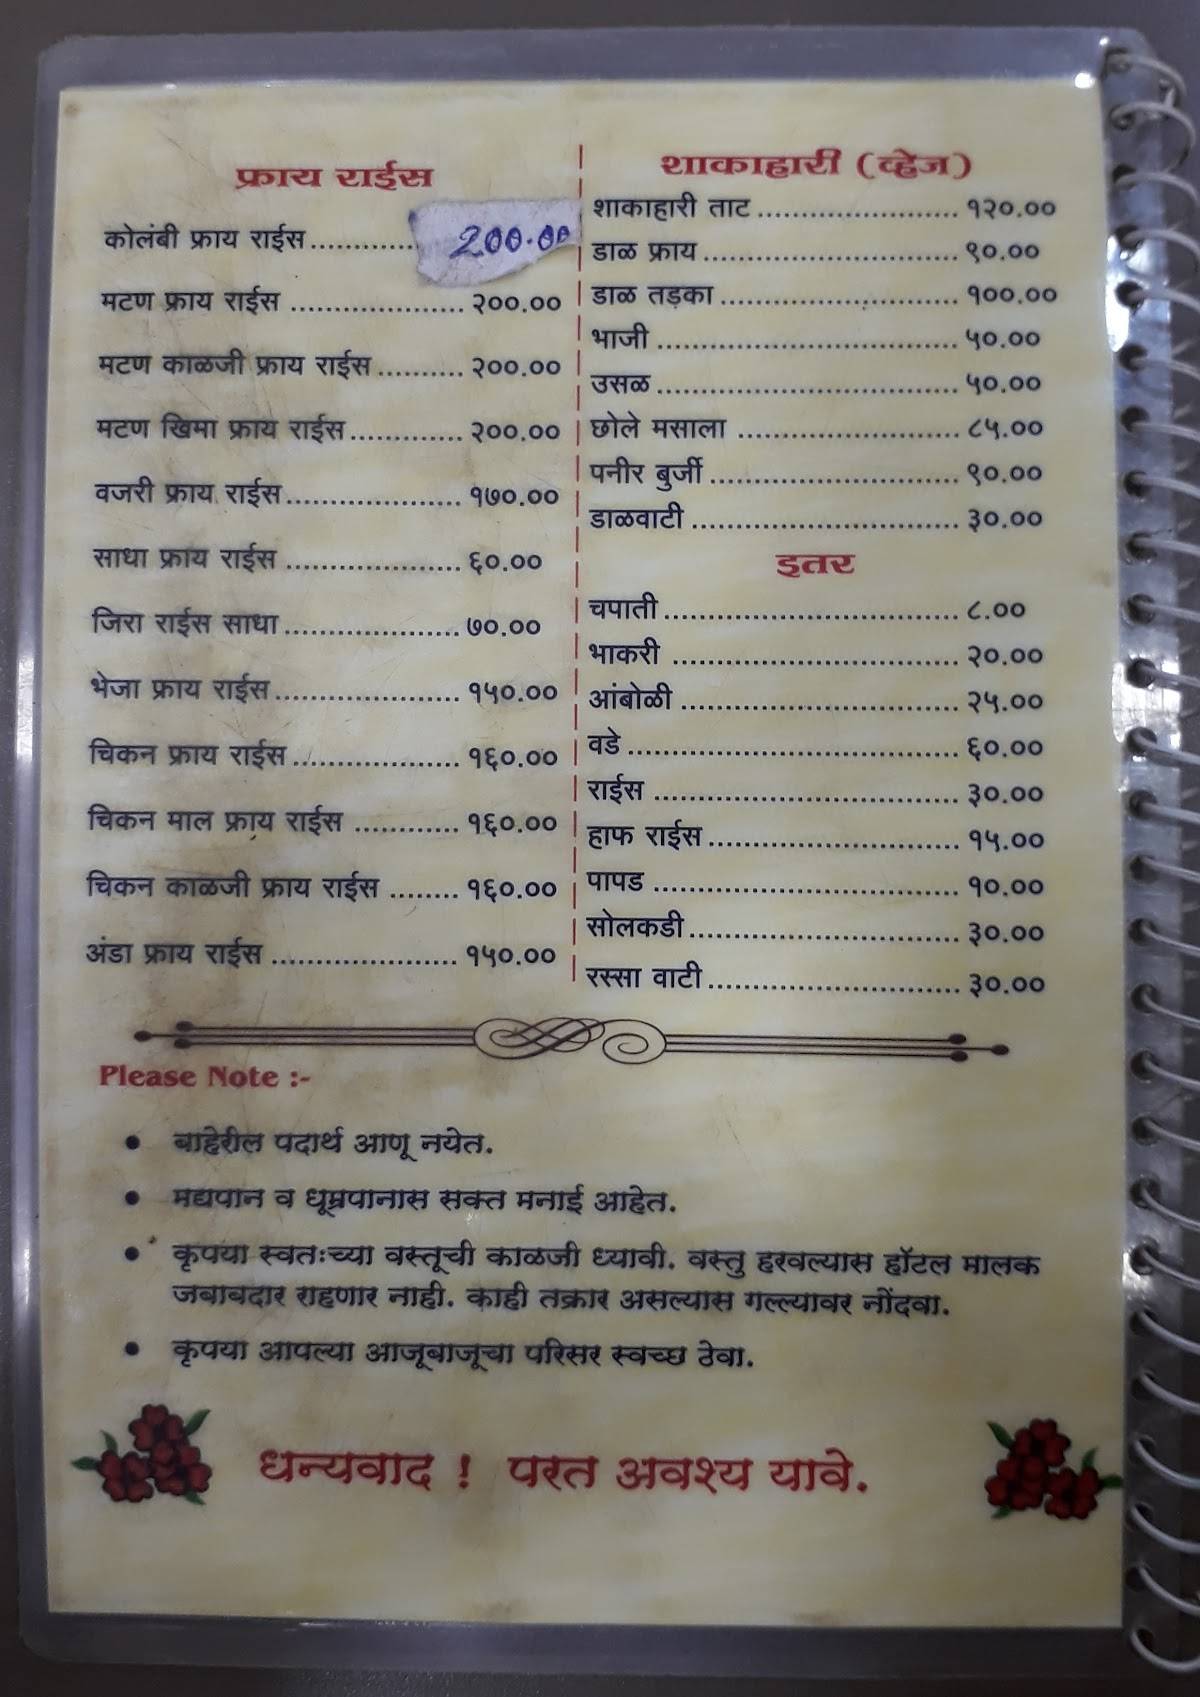 फ्राय राईस
कोलंबी फ्राय राईस............. 200.00
मटण फ्राय राईस ................... २००.००
मटण काळजी फ्राय राईस.......... २००.००
मटण खिमा फ्राय राईस............. २००.००
वजरी फ्राय राईस.................... १७०.००
साधा फ्राय राईस .................... ६०.००
जिरा राईस साधा.................... ७०.००
भेजा फ्राय राईस..................... १५०.००
चिकन फ्राय राईस................... १६०.००
चिकन माल फ्राय राईस ............ १६०.००
चिकन काळजी फ्राय राईस ........ १६०.००
अंडा फ्राय राईस ..................... १५०.००
शाकाहारी (व्हेज)
शाकाहारी ताट....................... १२०.००
डाळ फ्राय............................. ९०.००
डाळ तड़का........................... १००.००
भाजी .................................. ५०.००
उसळ.................................. ५०.००
छोले मसाला ......................... ८५.००
पनीर बुर्जी............................ ९०.००
डाळवाटी .............................. ३०.००
इतर
चपाती................................. ८.००
भाकरी ................................ २०.००
आंबोळी ............................... २५.००
वडे ..................................... ६०.००
राईस .................................. ३०.००
हाफ राईस............................ १५.००
पापड .................................. १०.००
सोलकडी.............................. ३०.००
रस्सा वाटी............................ ३०.००
Please Note :-
• बाहेरील पदार्थ आणू नयेत.
• मद्यपान व धूम्रपानास सक्त मनाई आहेत.
• कृपया स्वतःच्या वस्तूची काळजी ध्यावी. वस्तु हरवल्यास हॉटल मालक
जबाबदार राहणार नाही. काही तक्रार असल्यास गल्ल्यावर नोंदवा.
• कृपया आपल्या आजूबाजूचा परिसर स्वच्छ ठेवा.
धन्यवाद ! परत अवश्य यावे.